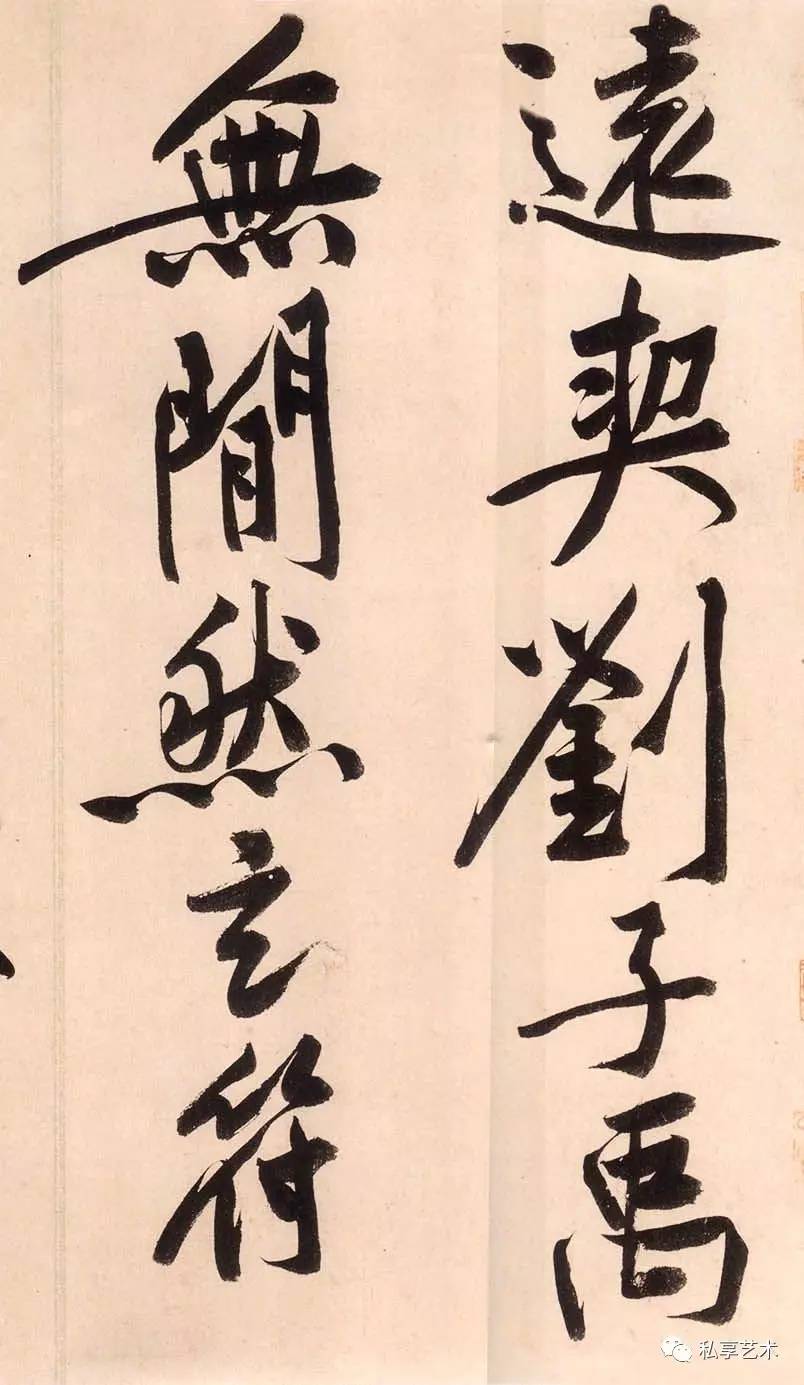 遠契劉子禹
無間然玄符
私享艺术